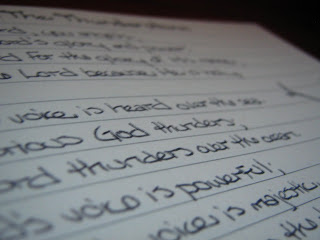 The
Lord's glory and power
For the glory of His
Lord because He is
voice is heard over the sea.
orious God thunders,
ord thunders over the ocean.
d's voice is powerful;
voice is majestic